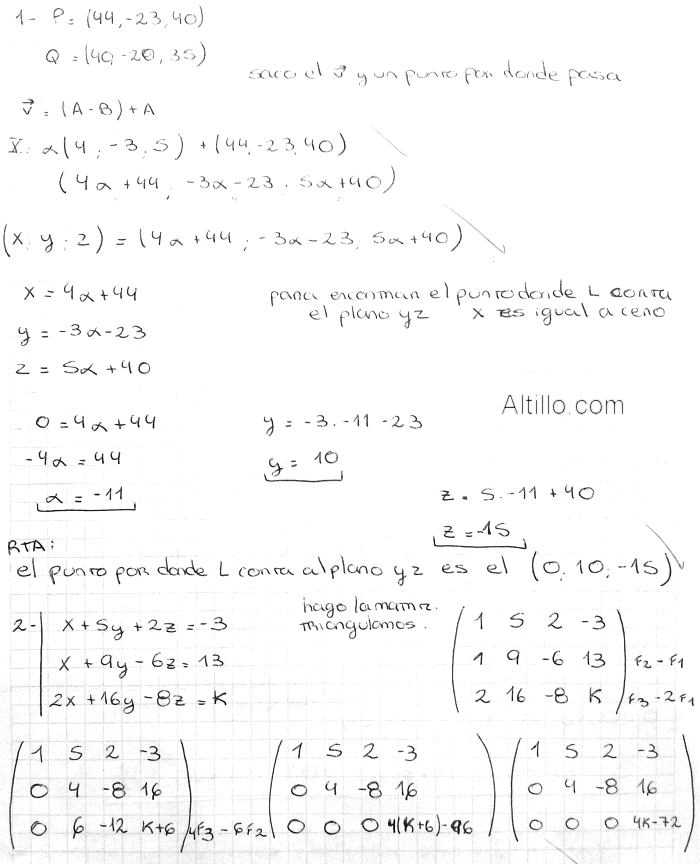 1- P = (44, -23, 40)
Q = (40, -20, 35)
saco el v⃗ y un punto por donde pasa
v⃗ = (A - B) + A
X: α(4, -3, 5) + (44, -23, 40)
(4α + 44, -3α - 23, 5α + 40)
(x, y, z) = (4α + 44, -3α - 23, 5α + 40)
x = 4α + 44
para encontrar el punto donde L corta
el plano yz x es igual a cero
y = -3α - 23
z = 5α + 40
Altillo.com
0 = 4α + 44
y = -3 . -11 - 23
-4α = 44
y = 10
α = -11
z = 5 . -11 + 40
z = -15
RTA:
el punto por donde L corta al plano yz es el (0, 10, -15)
2- x + 5y + 2z = -3
x + 9y - 6z = 13
2x + 16y - 8z = K
hago la matriz.
Triangulamos.
1 5 2 -3
1 9 -6 13 F2 - F1
2 16 -8 K F3 - 2F1
1 5 2 -3
0 4 -8 16
0 6 -12 K+6 4F3 - 6F2
1 5 2 -3
0 4 -8 16
0 0 0 4(K+6) - 96
1 5 2 -3
0 4 -8 16
0 0 0 4K-72